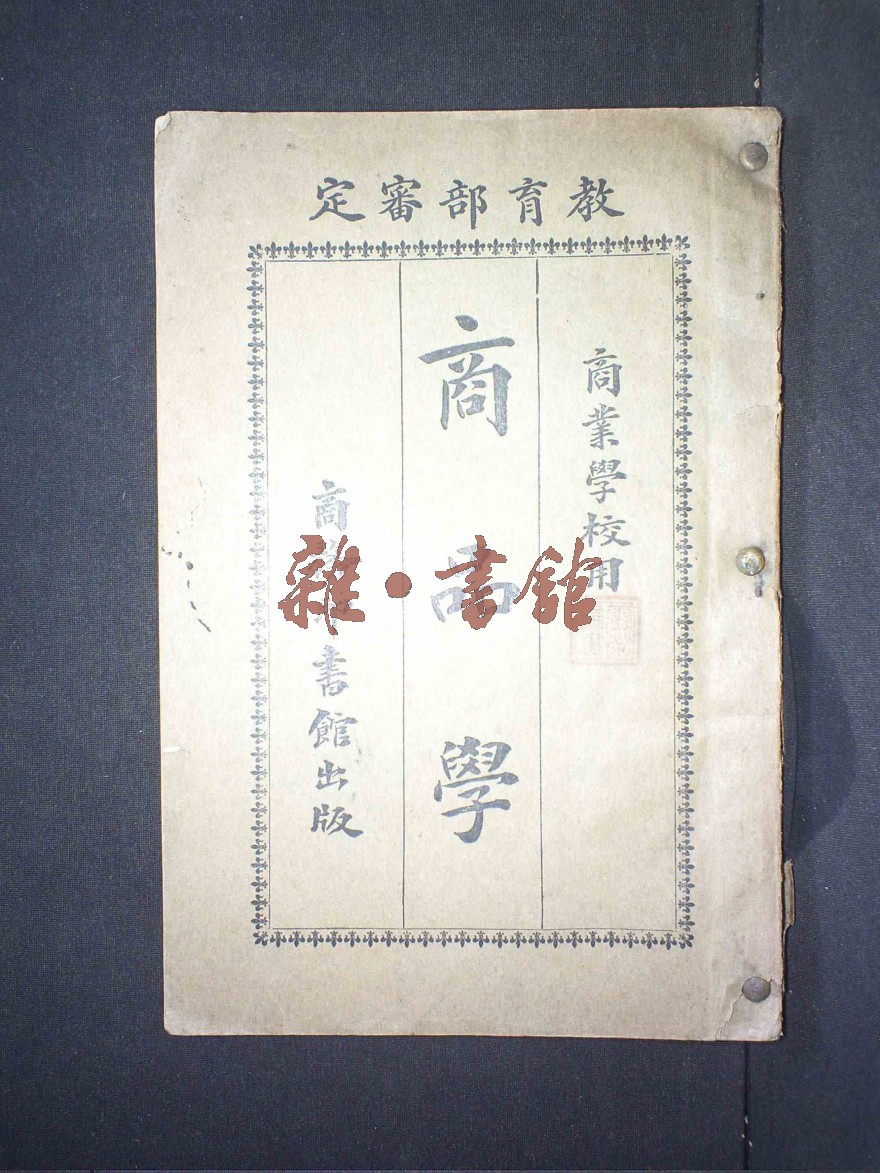 教育部審定
商業學校用
商品學
商務印書館出版
雜·書館